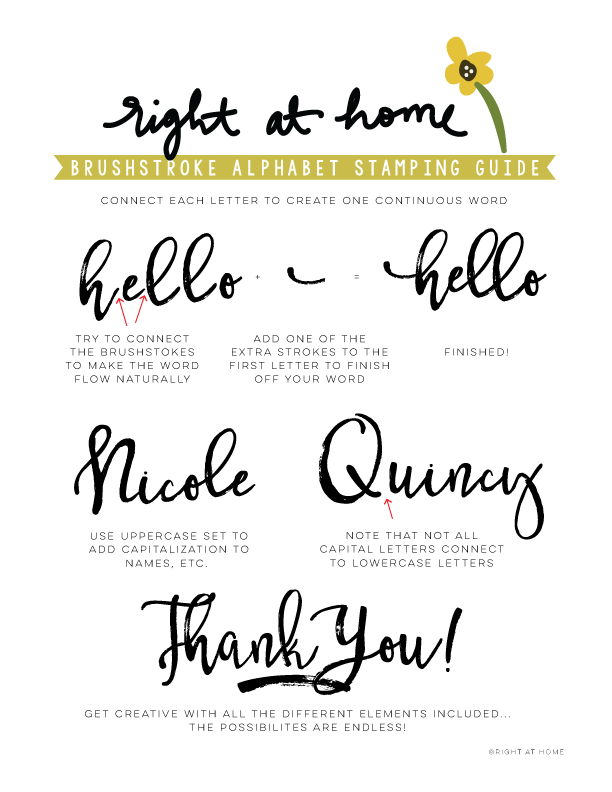 right at home
BRUSHSTROKE ALPHABET STAMPING GUIDE
CONNECT EACH LETTER TO CREATE ONE CONTINUOUS WORD
hello + = hello
TRY TO CONNECT
THE BRUSHSTOKES
TO MAKE THE WORD
FLOW NATURALLY
ADD ONE OF THE
EXTRA STROKES TO THE
FIRST LETTER TO FINISH
OFF YOUR WORD
FINISHED!
Nicole
USE UPPERCASE SET TO
ADD CAPITALIZATION TO
NAMES, ETC.
Quincy
NOTE THAT NOT ALL
CAPITAL LETTERS CONNECT
TO LOWERCASE LETTERS
Thank You!
GET CREATIVE WITH ALL THE DIFFERENT ELEMENTS INCLUDED...
THE POSSIBILITES ARE ENDLESS!
©RIGHT AT HOME